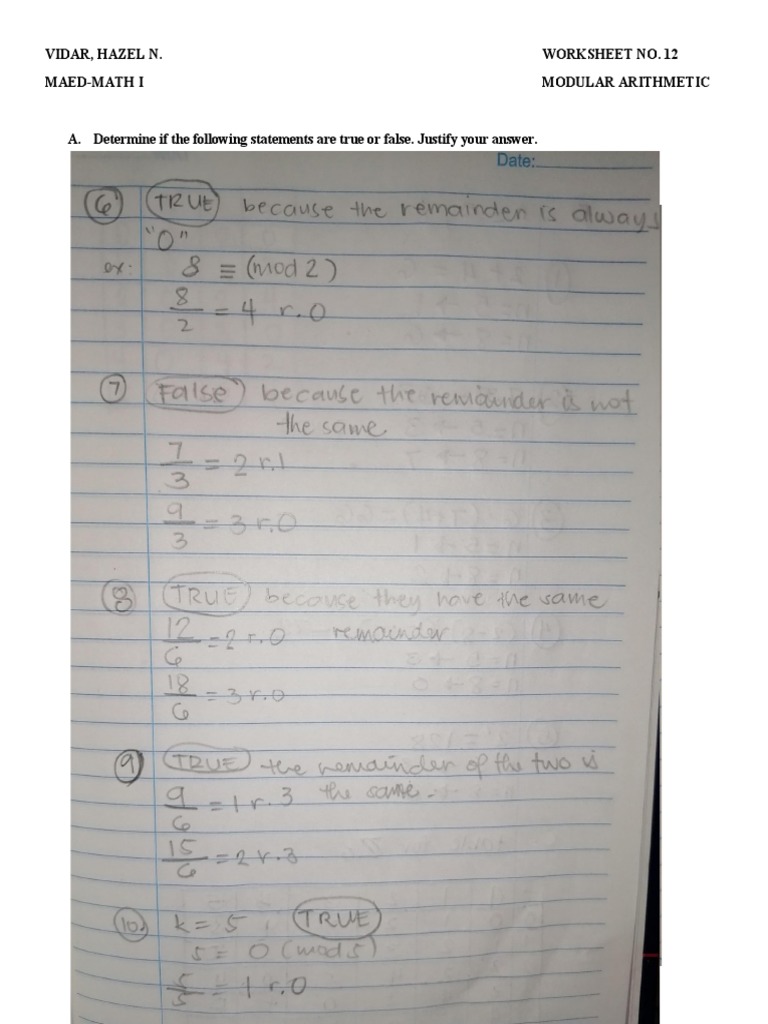 VIDAR, HAZEL N. WORKSHEET NO. 12
MAED-MATH I MODULAR ARITHMETIC
A. Determine if the following statements are true or false. Justify your answer.
Date:
6 TRUE because the remainder is always
"0"
ex: 8 ≡ (mod 2)
8/2 = 4 r.0
7 False because the remainder is not
the same
7/3 = 2 r.1
9/3 = 3 r.0
8 TRUE because they have the same
12/6 = 2 r.0 remainder
18/6 = 3 r.0
9 TRUE the remainder of the two is
9/6 = 1 r.3 the same.
15/6 = 2 r.3
10. k = 5, TRUE
5 ≡ 0 (mod 5)
5/5 = 1 r.0